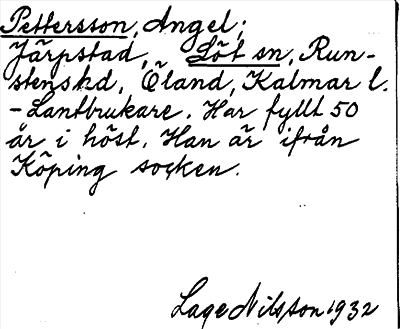 Pettersson, Angel;
Järpstad, Löt sn, Run-
stenshd, Öland, Kalmar l.
- Lantbrukare. Har fyllt 50
år i höst. Han är ifrån
Köping socken.
Lage Nilsson 1932